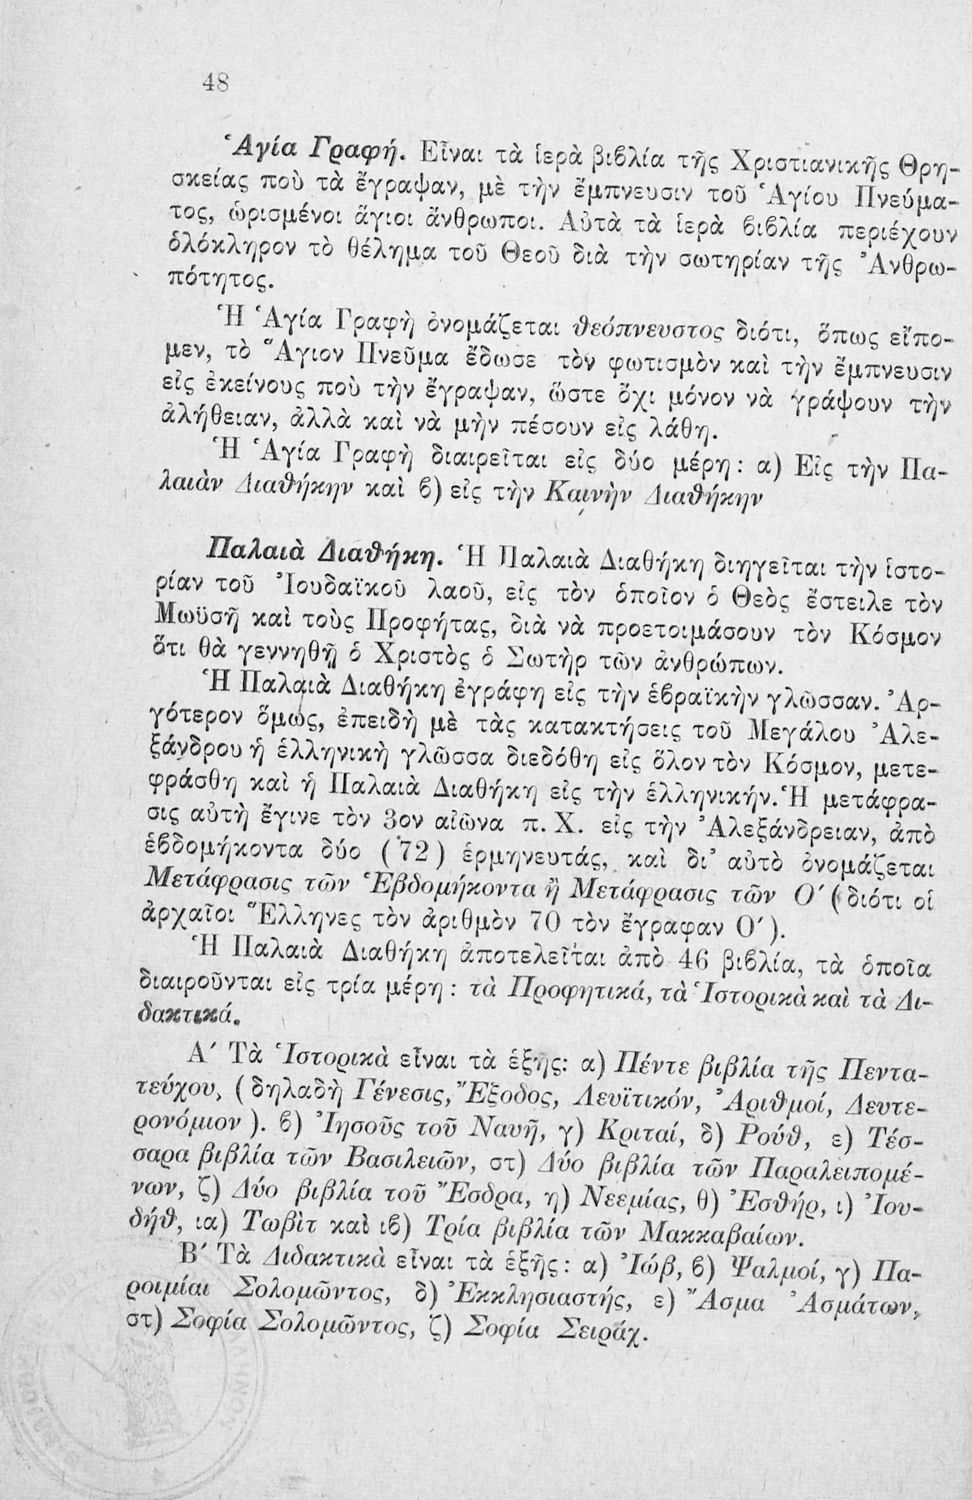 48
Ἁγία Γραφή. Εἶναι τὰ ἱερὰ βιβλία τῆς Χριστιανικῆς Θρη-
σκείας ποὺ τὰ ἔγραψαν, μὲ τὴν ἔμπνευσιν τοῦ Ἁγίου Πνεύμα-
τος, ὡρισμένοι ἅγιοι ἄνθρωποι. Αὐτὰ τὰ ἱερὰ βιβλία περιέχουν
ὁλόκληρον τὸ θέλημα τοῦ Θεοῦ διὰ τὴν σωτηρίαν τῆς Ἀνθρω-
πότητος.
Ἡ Ἁγία Γραφὴ ὀνομάζεται θεόπνευστος διότι, ὅπως εἴπο-
μεν, τὸ Ἅγιον Πνεῦμα ἔδωσε τὸν φωτισμὸν καὶ τὴν ἔμπνευσιν
εἰς ἐκείνους ποὺ τὴν ἔγραψαν, ὥστε ὄχι μόνον νὰ γράψουν τὴν
ἀλήθειαν, ἀλλὰ καὶ νὰ μὴν πέσουν εἰς λάθη.
Ἡ Ἁγία Γραφὴ διαιρεῖται εἰς δύο μέρη: α) Εἰς τὴν Πα-
λαιὰν Διαθήκην καὶ β) εἰς τὴν Καινὴν Διαθήκην
Παλαιὰ Διαθήκη. Ἡ Παλαιὰ Διαθήκη διηγεῖται τὴν ἱστο-
ρίαν τοῦ Ἰουδαϊκοῦ λαοῦ, εἰς τὸν ὁποῖον ὁ Θεὸς ἔστειλε τὸν
Μωϋσῆ καὶ τοὺς Προφήτας, διὰ νὰ προετοιμάσουν τὸν Κόσμον
ὅτι θὰ γεννηθῇ ὁ Χριστὸς ὁ Σωτὴρ τῶν ἀνθρώπων.
Ἡ Παλαιὰ Διαθήκη ἐγράφη εἰς τὴν ἑβραϊκὴν γλῶσσαν. Ἀρ-
γότερον ὅμως, ἐπειδὴ μὲ τὰς κατακτήσεις τοῦ Μεγάλου Ἀλε-
ξάνδρου ἡ ἑλληνικὴ γλῶσσα διεδόθη εἰς ὅλον τὸν Κόσμον, μετε-
φράσθη καὶ ἡ Παλαιὰ Διαθήκη εἰς τὴν ἑλληνικήν. Ἡ μετάφρα-
σις αὐτὴ ἔγινε τὸν 3ον αἰῶνα π. Χ. εἰς τὴν Ἀλεξάνδρειαν, ἀπὸ
ἑβδομήκοντα δύο (72) ἑρμηνευτάς, καὶ δι' αὐτὸ ὀνομάζεται
Μετάφρασις τῶν Ἑβδομήκοντα ἢ Μετάφρασις τῶν Ο' (διότι οἱ
ἀρχαῖοι Ἕλληνες τὸν ἀριθμὸν 70 τὸν ἔγραφαν Ο').
Ἡ Παλαιὰ Διαθήκη ἀποτελεῖται ἀπὸ 46 βιβλία, τὰ ὁποῖα
διαιροῦνται εἰς τρία μέρη: τὰ Προφητικά, τὰ Ἱστορικὰ καὶ τὰ Δι-
δακτικά.
Α' Τὰ Ἱστορικὰ εἶναι τὰ ἑξῆς: α) Πέντε βιβλία τῆς Πεντα-
τεύχου, (δηλαδὴ Γένεσις, Ἔξοδος, Λευϊτικόν, Ἀριθμοί, Δευτε-
ρονόμιον). β) Ἰησοῦς τοῦ Ναυῆ, γ) Κριταί, δ) Ρούθ, ε) Τέσ-
σαρα βιβλία τῶν Βασιλειῶν, στ) Δύο βιβλία τῶν Παραλειπομέ-
νων, ζ) Δύο βιβλία τοῦ Ἔσδρα, η) Νεεμίας, θ) Ἐσθήρ, ι) Ἰου-
δήθ, ια) Τωβὶτ καὶ ιβ) Τρία βιβλία τῶν Μακκαβαίων.
Β' Τὰ Διδακτικὰ εἶναι τὰ ἑξῆς: α) Ἰώβ, β) Ψαλμοί, γ) Πα-
ροιμίαι Σολομῶντος, δ) Ἐκκλησιαστής, ε) Ἄσμα Ἀσμάτων,
στ) Σοφία Σολομῶντος, ζ) Σοφία Σειράχ.